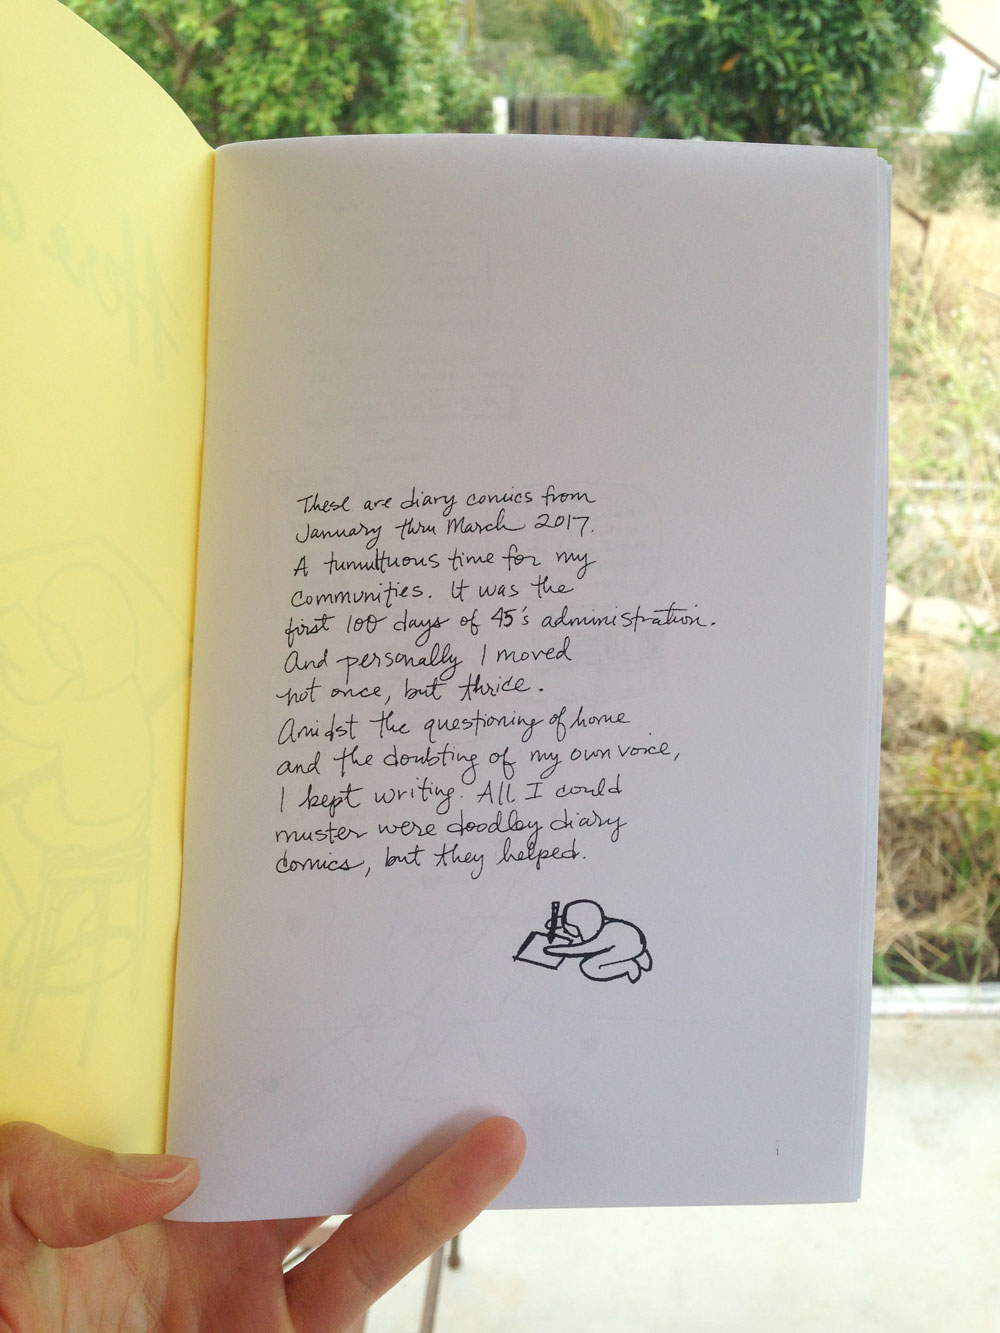 These are diary comics from
January thru March 2017.
A tumultuous time for my
communities. It was the
first 100 days of 45's administration.
And personally I moved
not once, but thrice.
Amidst the questioning of home
and the doubting of my own voice,
I kept writing. All I could
muster were doodley diary
comics, but they helped.
1